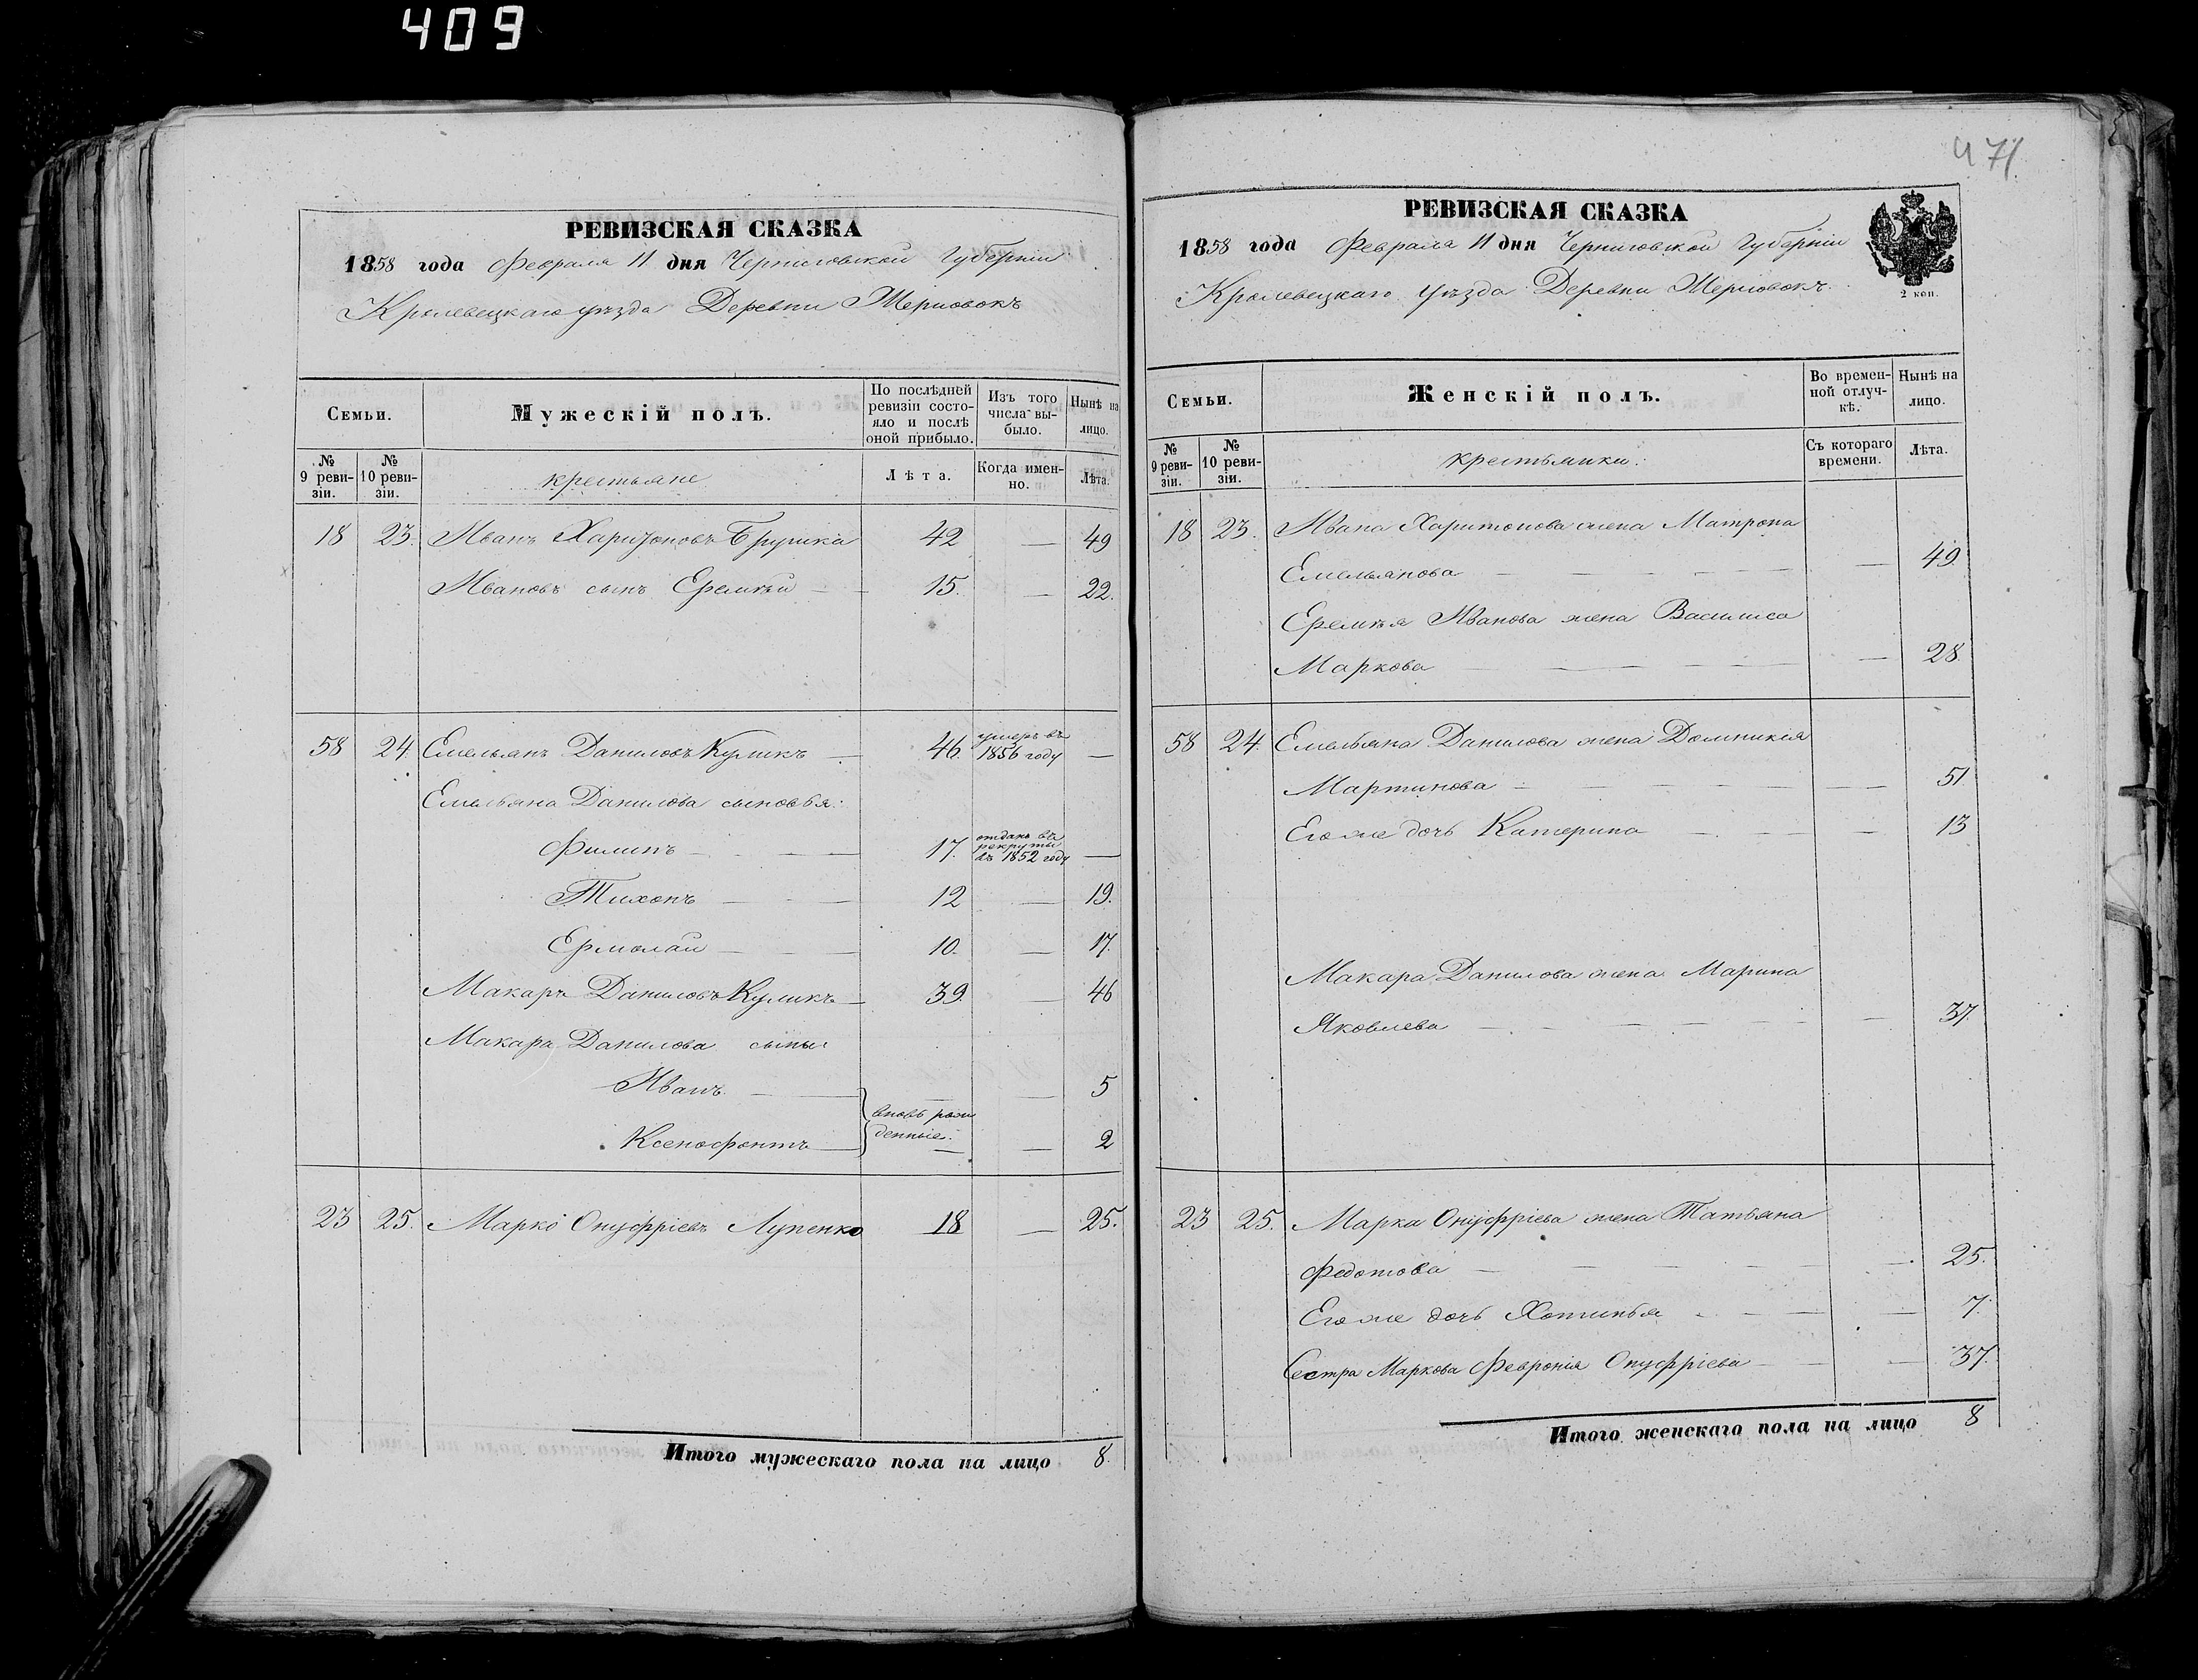 409
РЕВИЗСКАЯ СКАЗКА
1858 года Февраля 11 дня Черниговской Губерніи
Кролевецкаго уѣзда Деревни
Семьи.
Мужескій полъ.
По послѣдней ревизіи состояло и послѣ оной прибыло.
Изъ того числа выбыло.
Нынѣ на лицо.
№ 9 ревизіи.
№ 10 ревизіи.
крестьяне
Лѣта.
Когда именно.
Лѣта.
18 23. Иванъ Харитоновъ 42 — 49
Ивановъ сынъ Еремѣй — 15. — 22.
58 24. Емельянъ Даниловъ Куликъ — 46. умеръ въ 1856 году —
Емельяна Данилова сыновья:
Филипъ — 17. отданъ въ рекруты въ 1852 году —
Тихонъ — 12 — 19.
Ермолай — 10. — 17.
Макаръ Даниловъ Куликъ — 39. — 46
Макара Данилова сыны:
Иванъ — — — 5
вновь рожденные.
Ксенофонтъ — — — 2
23 25. Марко Онуфріевъ Лупенко 18 — 25.
Итого мужескаго пола на лицо 8.
471
РЕВИЗСКАЯ СКАЗКА
1858 года Февраля 11 дня Черниговской Губерніи
Кролевецкаго уѣзда Деревни
2 коп.
Семьи.
Женскій полъ.
Во временной отлучкѣ.
Нынѣ на лицо.
№ 9 ревизіи.
№ 10 ревизіи.
крестьянки.
Съ котораго времени.
Лѣта.
18 23. Ивана Харитонова жена Матрона
Емельянова — — 49
Еремѣя Иванова жена Василиса
Маркова — — 28.
58 24. Емельяна Данилова жена Домникія
Мартинова — — 51
Его же дочь Катерина — — 13
Макара Данилова жена Марина
Яковлева — — 37
23 25. Марка Онуфріева жена Татьяна
Федотова — — 25.
Его же дочь Хотинья — — 7.
Сестра Маркова Февронія Онуфріева — — 37.
Итого женскаго пола на лицо 8